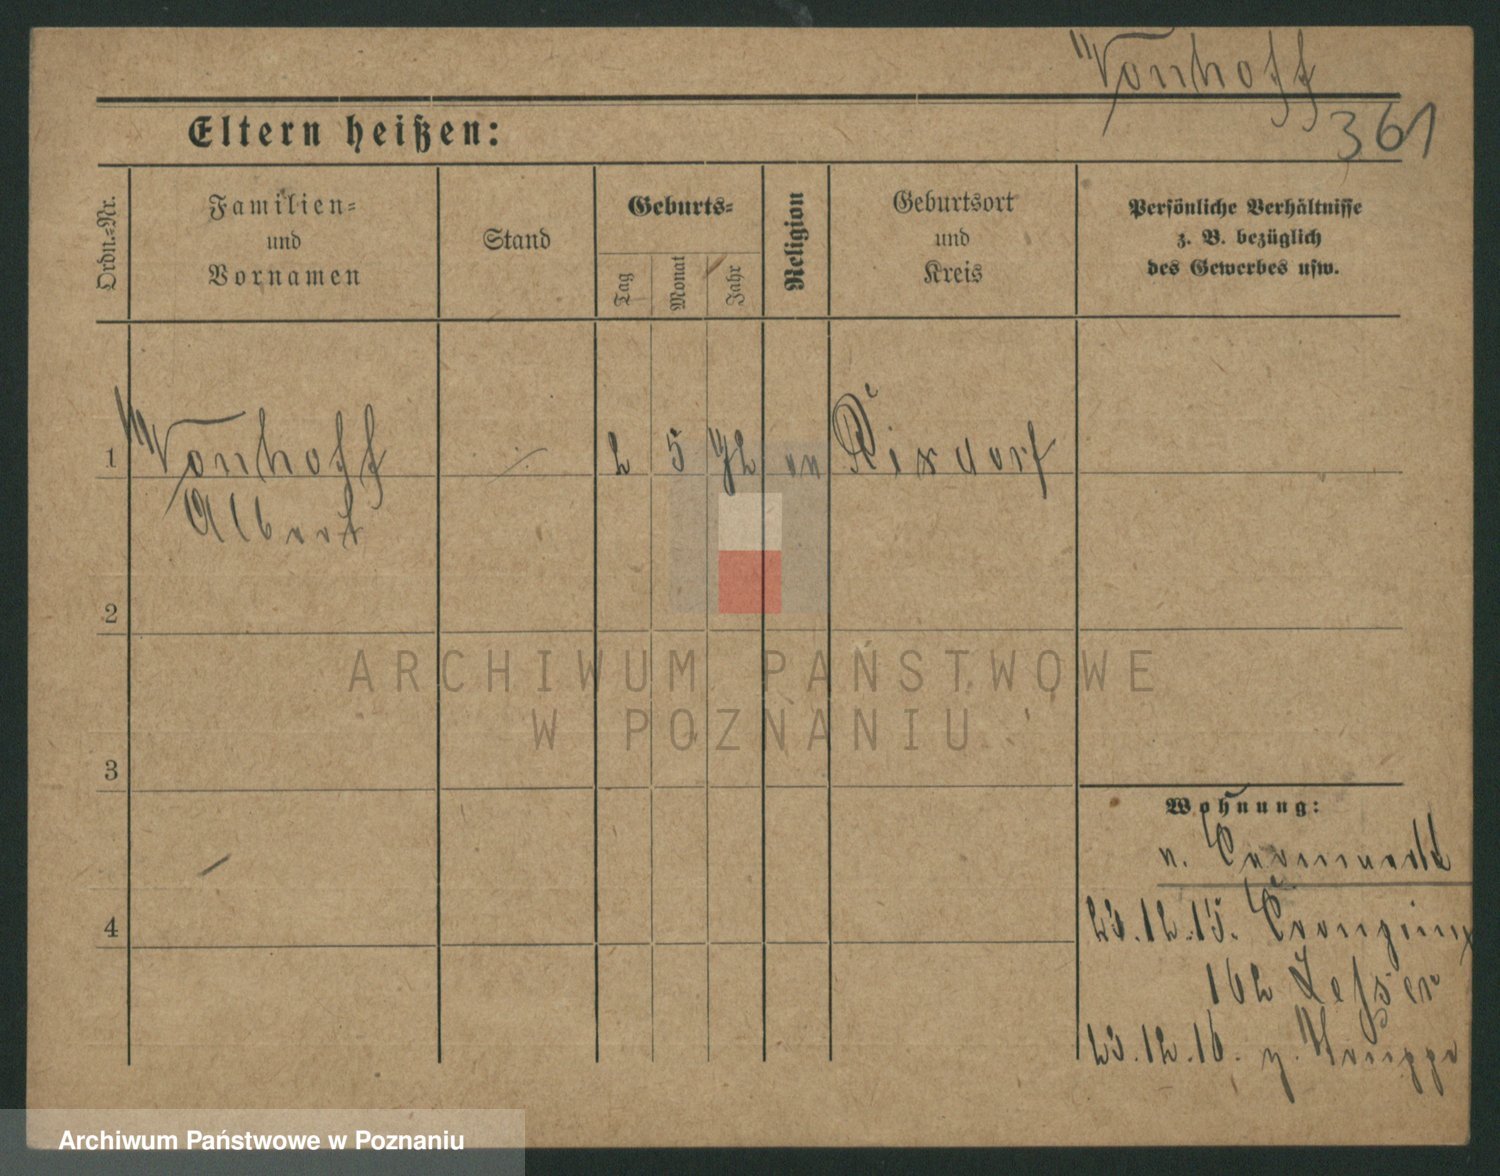 Vonhoff
361
Eltern heißen:
Ordn.-Nr.
Familien-
und
Vornamen
Stand
Geburts-
Tag
Monat
Jahr
Religion
Geburtsort
und
Kreis
Persönliche Verhältnisse
z. B. bezüglich
des Gewerbes usw.
1 Vonhoff 2 5 92 ev Rixdorf
Albert
2
3
4
Wohnung:
v.
23.12.15.
162 Lesser
23.12.16. z. Truppe
ARCHIWUM PAŃSTWOWE
W POZNANIU
Archiwum Państwowe w Poznaniu